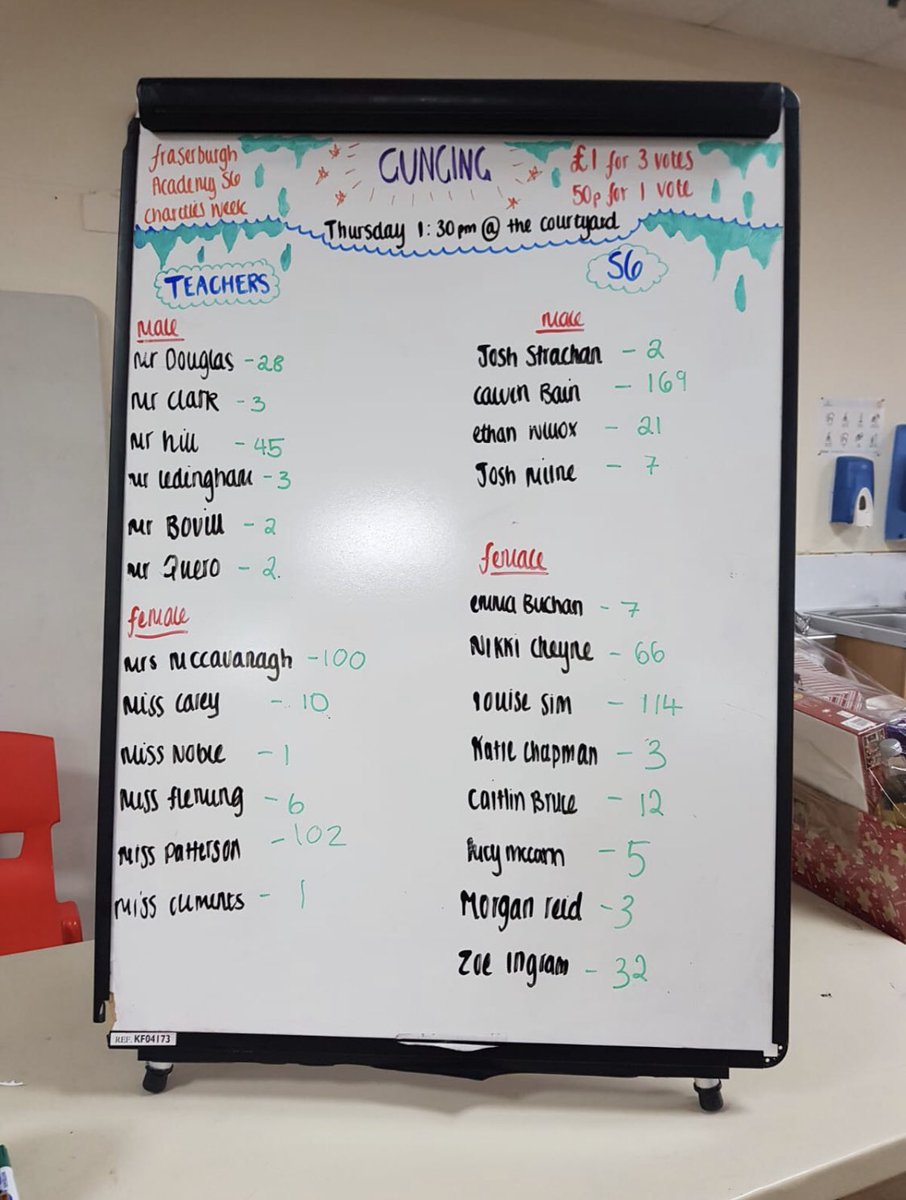 fraserburgh
Academy S6
Charities Week
GUNGING
£1 for 3 votes
50p for 1 vote
Thursday 1:30pm @ the courtyard
TEACHERS
Male
Mr Douglas - 28
Mr Clark - 3
Mr Hill - 45
Mr Ledingham - 3
Mr Bovill - 2
Mr Quero - 2
female
Mrs McCavanagh - 100
Miss Carey - 10
Miss Noble - 1
Miss Fleming - 6
Miss Patterson - 102
Miss Clements - 1
S6
Male
Josh Strachan - 2
Calvin Bain - 169
ethan Willox - 21
Josh Milne - 7
female
emma Buchan - 7
Nikki Cheyne - 66
louise Sim - 114
Katie Chapman - 3
Caitlin Bruce - 12
Lucy mccarn - 5
Morgan reid - 3
Zoe Ingram - 32
REF. KF04173